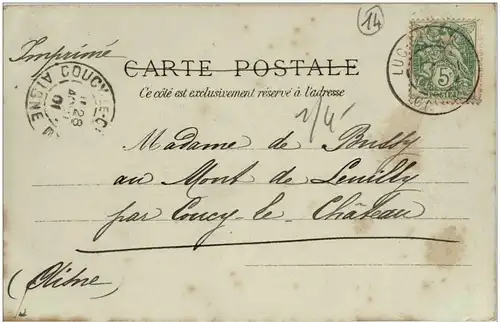 14
Imprimé
CARTE POSTALE
Ce côté est exclusivement réservé à l'adresse
COUCY-LE-CH
AISNE
28
01
LUC
5
POSTES
Madame de Bussy
au Mont de Leuilly
par Coucy-le-Château
(Aisne)